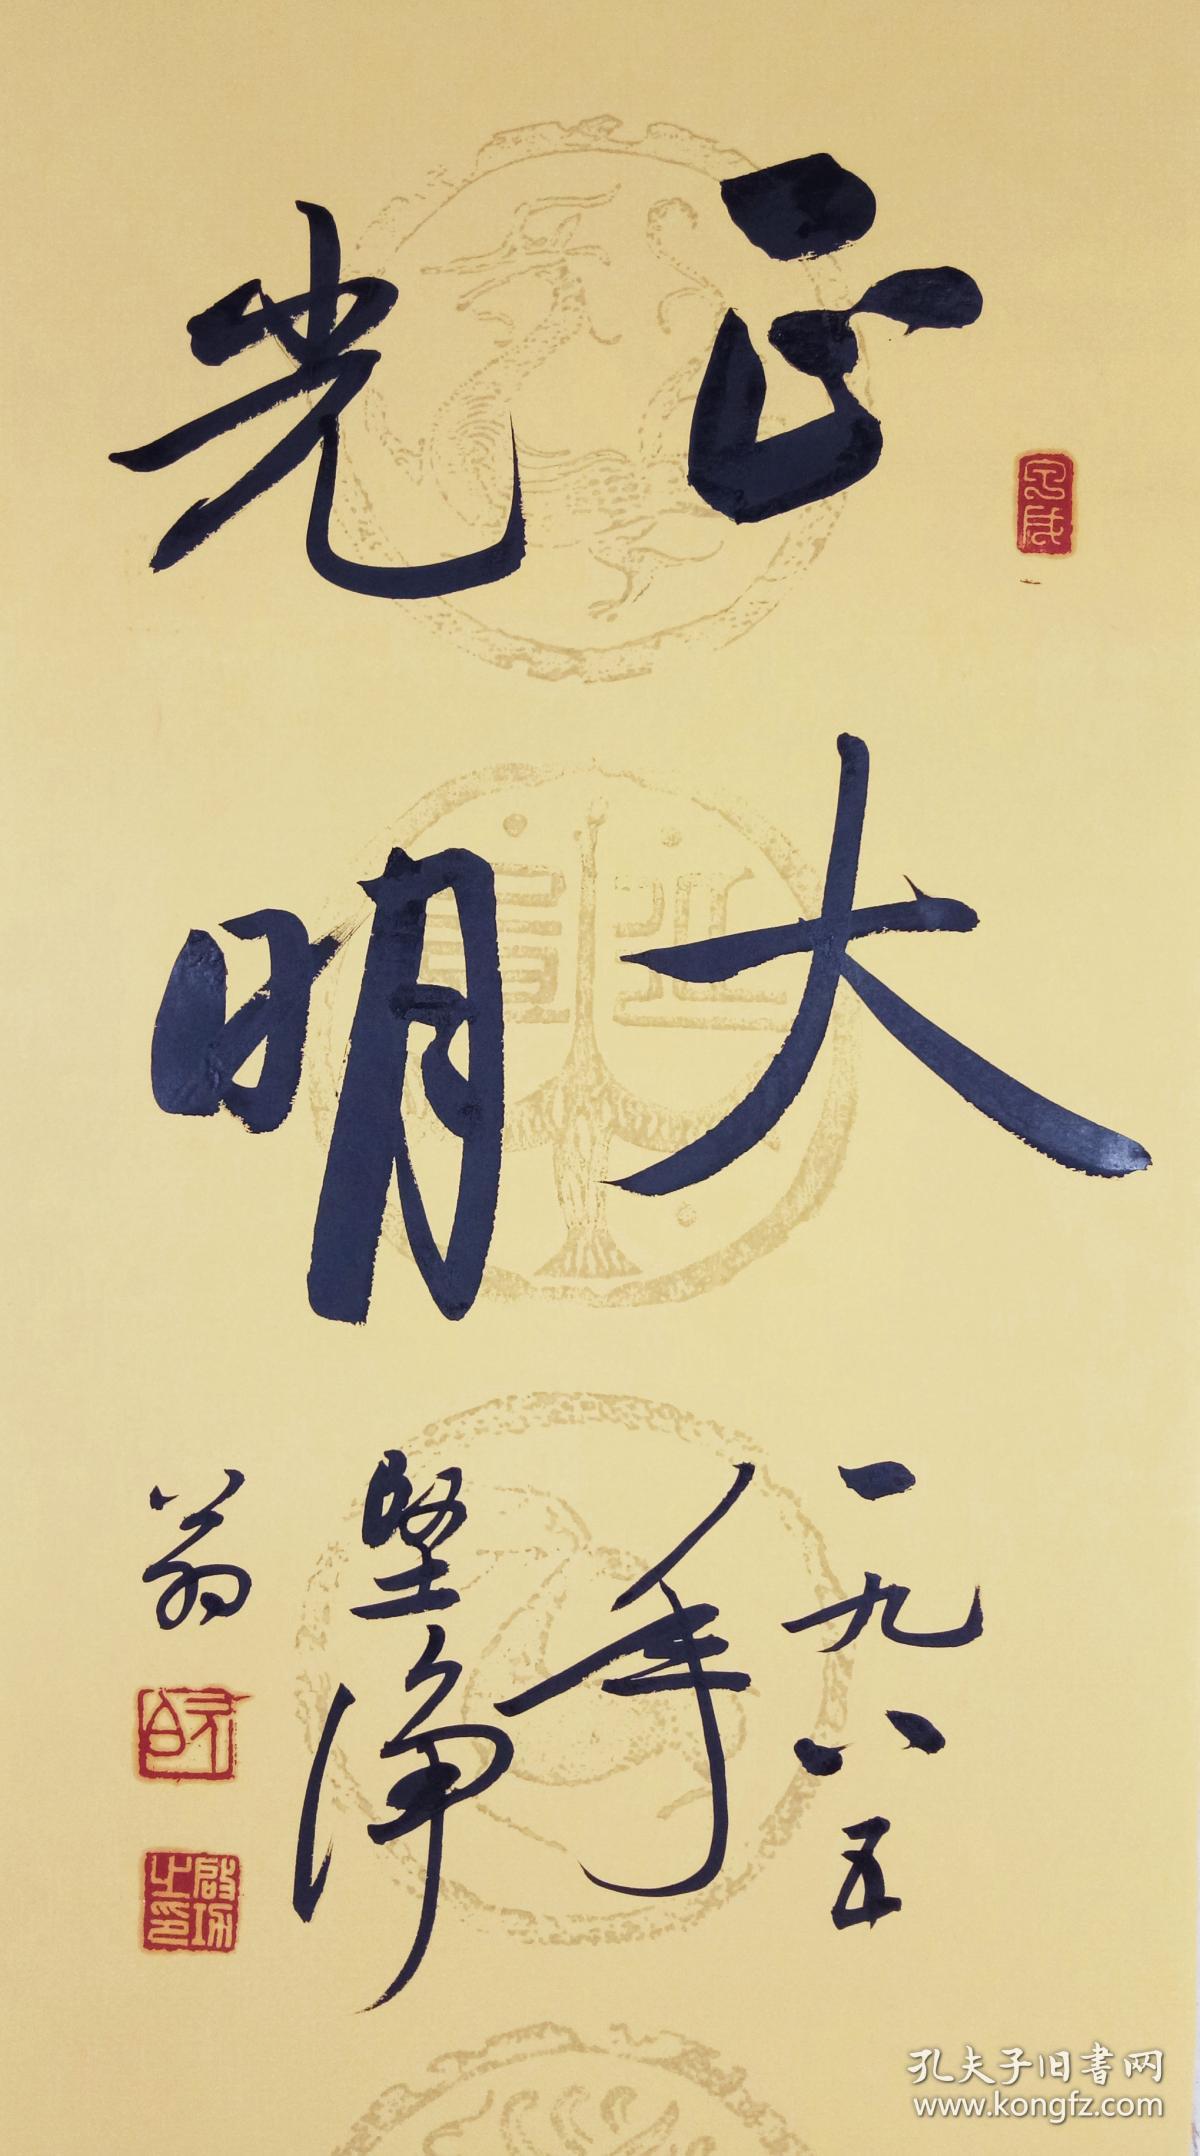 正大
光明
一九八五
年
坚净
翁
启功
之印
孔夫子旧书网
www.kongfz.com